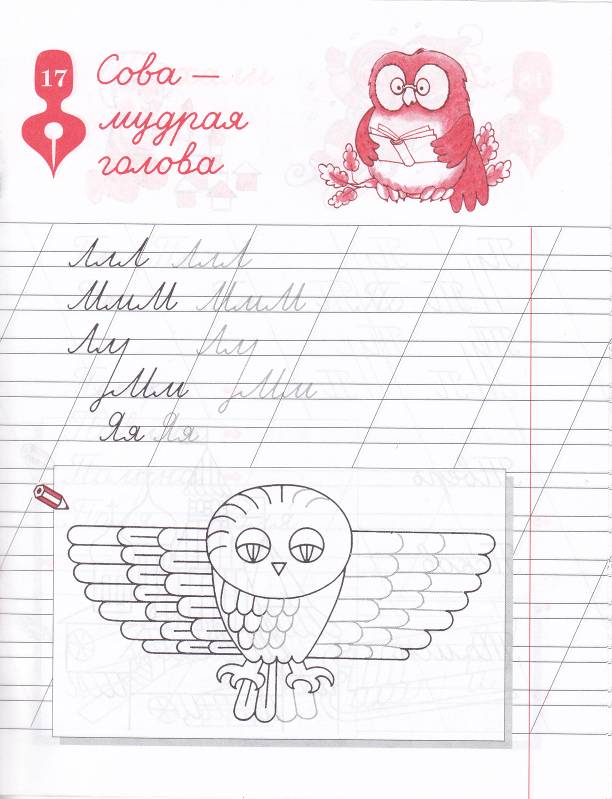 17
Сова —
мудрая
голова
ЛлЛ ЛлЛ
МмМ МмМ
Лм Лм
Яя Яя